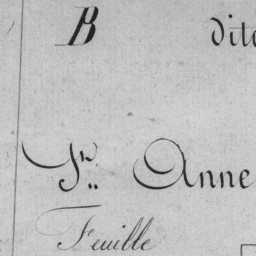 B dito
S.^n Anne
Feuille